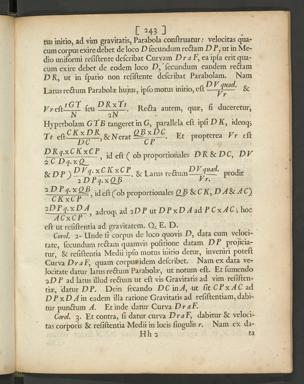 [ 243 ]
tus initio, ad vim gravitatis, Parabola construatur: velocitas qua-
cum corpus exire debet de loco D secundum rectam DP, ut in Me-
dio uniformi resistente describat Curvam DraF, ea ipsa erit qua-
cum exire debet de eodem loco D, secundum eandem rectam
DR, ut in spatio non resistente describat Parabolam. Nam
Latus rectum Parabolæ hujus, ipso motus initio, est DV quad./Vr &
Vr est tGT/N seu DR x Tt/2N. Recta autem, quæ, si duceretur,
Hyperbolam GTB tangeret in G, parallela est ipsi DK, ideoq;
Tt est CK x DR/DC, & N erat QB x DC/CP. Et propterea Vr est
DRq. x CK x CP/2CDq. x QB, id est (ob proportionales DR & DC, DV
& DP) DVq. x CK x CP/2DPq. x QB, & Latus rectum DV quad./Vr. prodit
2DPq. x QB/CK x CP, id est (ob proportionales QB & CK, DA & AC)
2DPq. x DA/AC x CP, adeoq; ad 2DP ut DP x DA ad PC x AC; hoc
est ut resistentia ad gravitatem. Q. E. D.
Corol. 2. Unde si corpus de loco quovis D, data cum veloci-
tate, secundum rectam quamvis positione datam DP projicia-
tur, & resistentia Medii ipso motus initio detur, inveniri potest
Curva DraF, quam corpus idem describet. Nam ex data ve-
locitate datur latus rectum Parabolæ, ut notum est. Et sumendo
2DP ad latus illud rectum ut est vis Gravitatis ad vim resisten-
tiæ, datur DP. Dein secando DC in A, ut sit CP x AC ad
DP x DA in eadem illa ratione Gravitatis ad resistentiam, dabi-
tur punctum A. Et inde datur Curva DraF.
Corol. 3. Et contra, si datur curva DraF, dabitur & veloci-
tas corporis & resistentia Medii in locis singulis r. Nam ex da-
Hh 2 ta